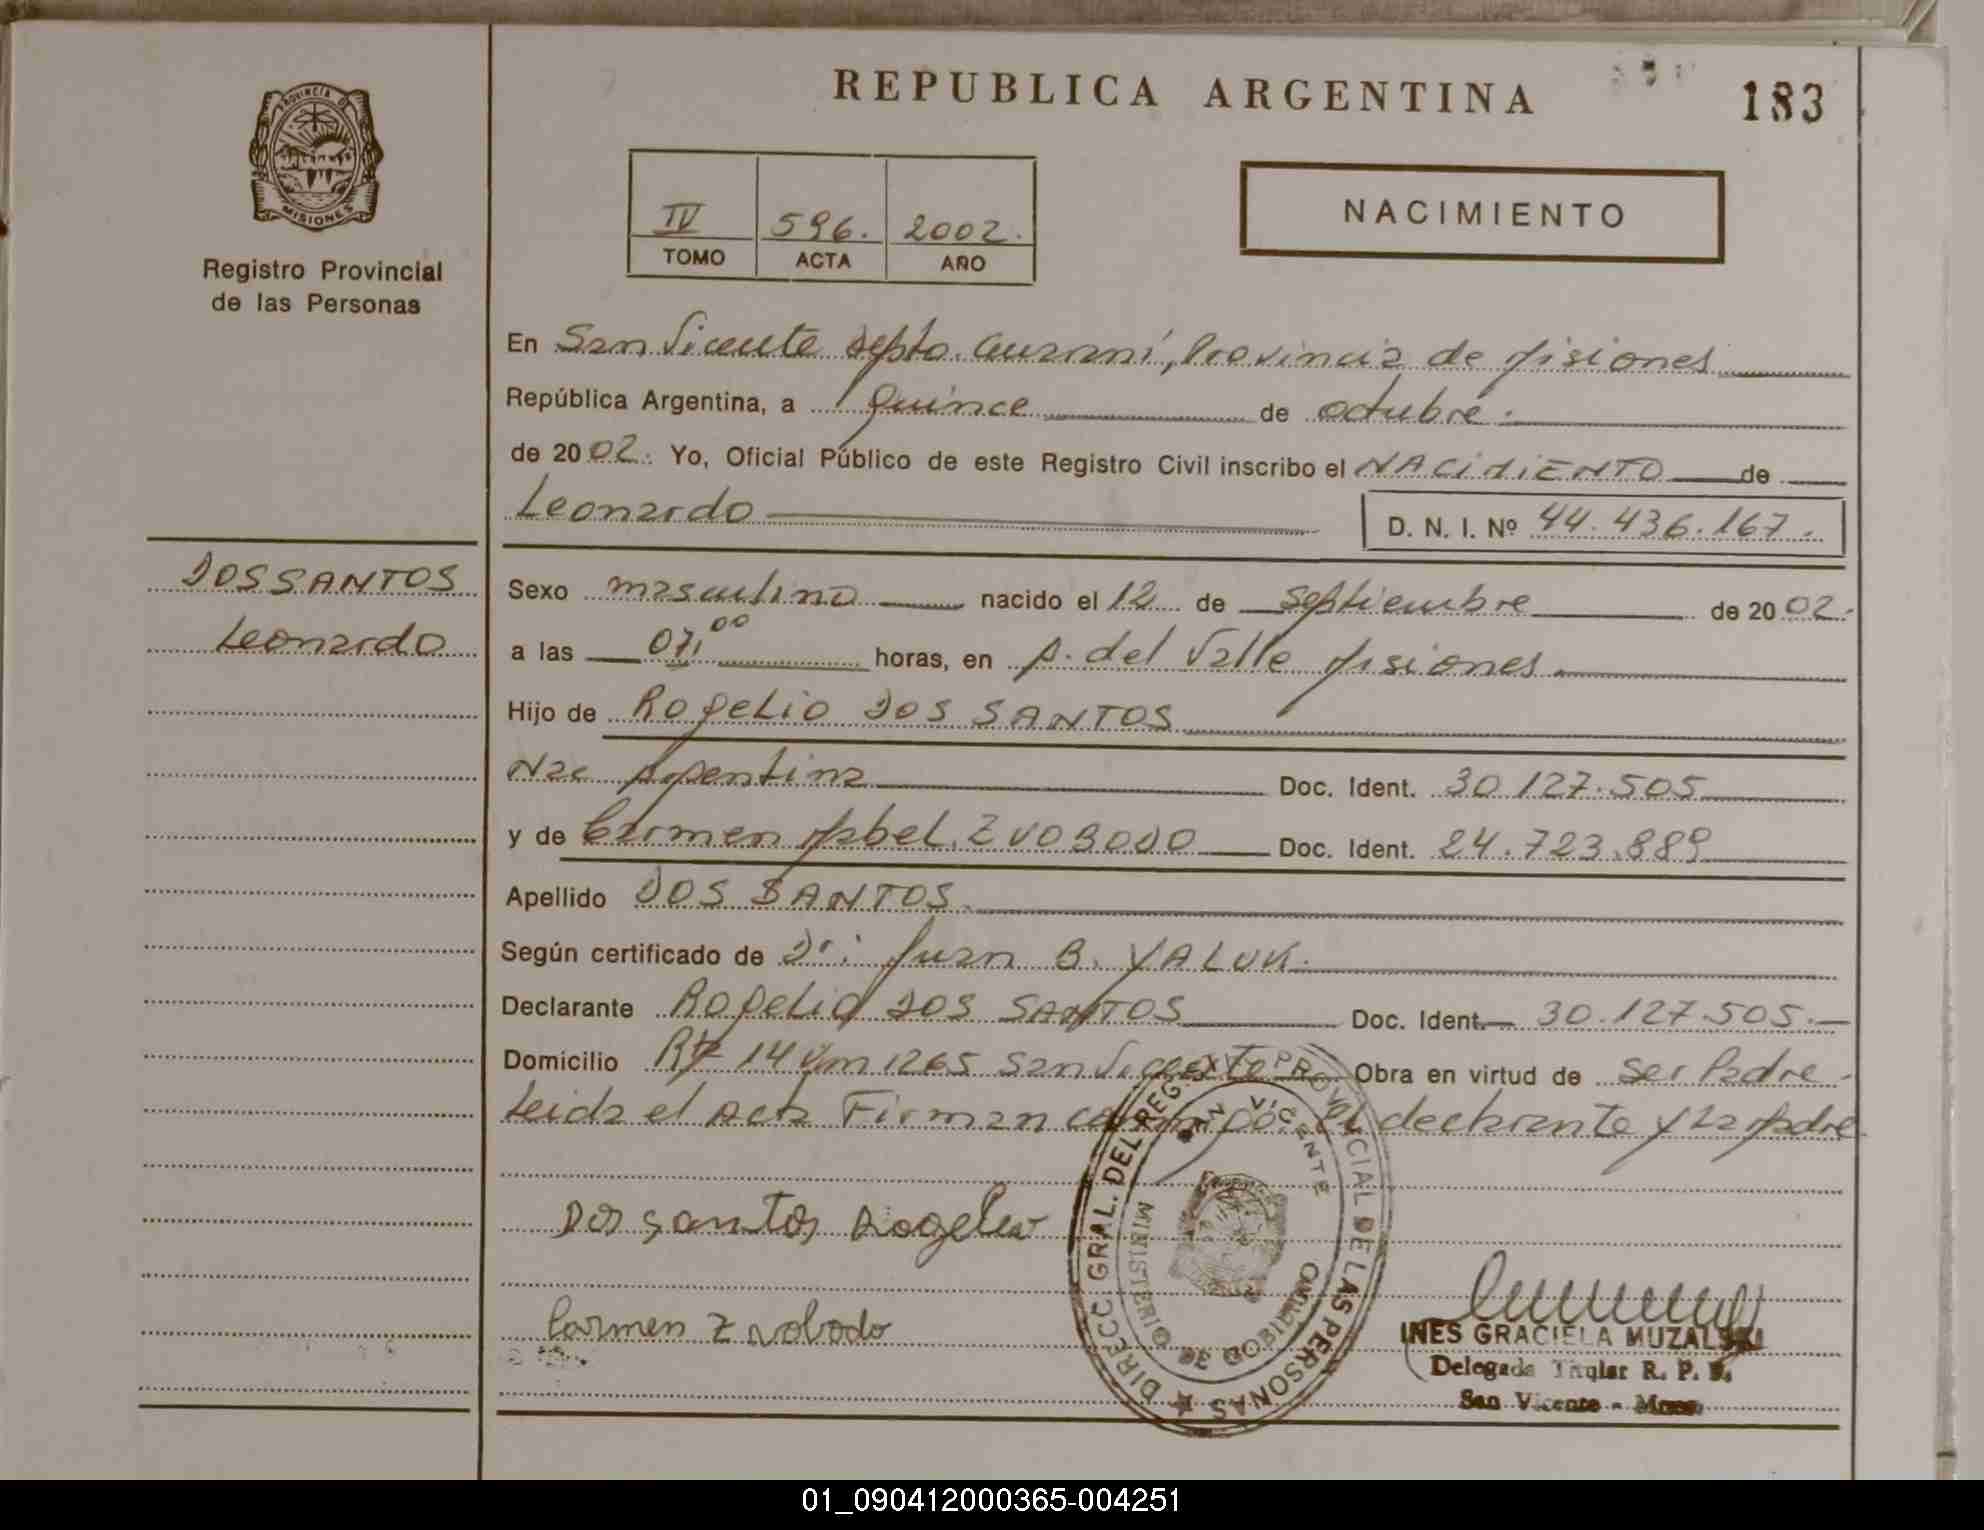 REPUBLICA ARGENTINA
183
PROVINCIA DE
MISIONES
Registro Provincial
de las Personas
IV 596. 2002.
TOMO ACTA AÑO
NACIMIENTO
En San Vicente Depto. Guaraní, Provincia de Misiones
República Argentina, a quince de octubre.
de 2002. Yo, Oficial Público de este Registro Civil inscribo el NACIMIENTO de
Leonardo D. N. I. Nº 44.436.167.
DOS SANTOS
Leonardo
Sexo masculino nacido el 12 de septiembre de 2002.
a las 07,00 horas, en A. del Valle Misiones
Hijo de Rogelio DOS SANTOS
Nac Argentina Doc. Ident. 30.127.505
y de Carmen Mabel ZVOBODO Doc. Ident. 24.723.889
Apellido DOS SANTOS
Según certificado de Dr: Juan B. YALUK.
Declarante Rogelio DOS SANTOS Doc. Ident. 30.127.505.
Domicilio Rta 14 Km 1265 San Vicente Obra en virtud de ser Padre
Leida el Acta Firman el declarante y La Madre
Dos santos Rogelio
Carmen Zvobodo
DIRECC GRAL. DEL REG PROVINCIAL DE LAS PERSONAS
SAN VICENTE
MINISTERIO DE GOBIERNO
INES GRACIELA MUZALSKI
Delegada Titular R. P. P.
San Vicente - Mnes.
01_090412000365-004251